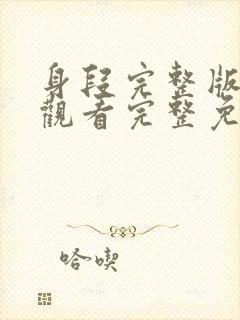 身段完整版
觀看完整免
哈喫